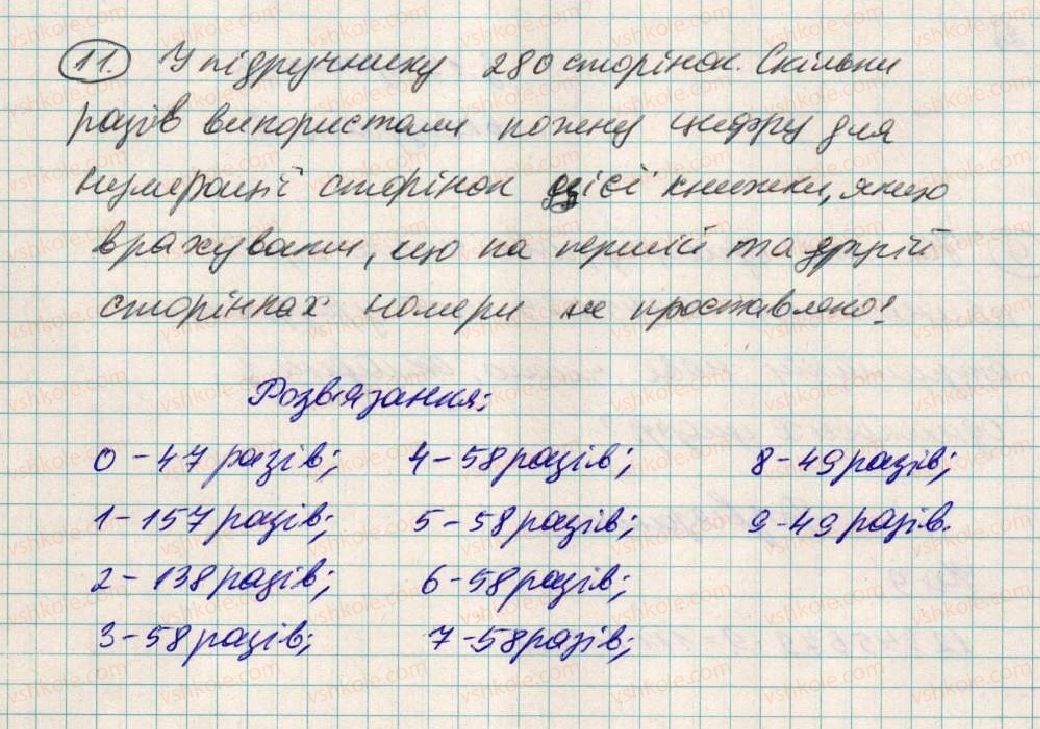 11. У підручнику 280 сторінок. Скільки
разів використали кожну цифру для
нумерації сторінок цієї книжки, якщо
врахувати, що на першій та другій
сторінках номери не проставлено?
Розв'язання:
0 - 47 разів; 4 - 58 разів; 8 - 49 разів;
1 - 157 разів; 5 - 58 разів; 9 - 49 разів.
2 - 138 разів; 6 - 58 разів;
3 - 58 разів; 7 - 58 разів;